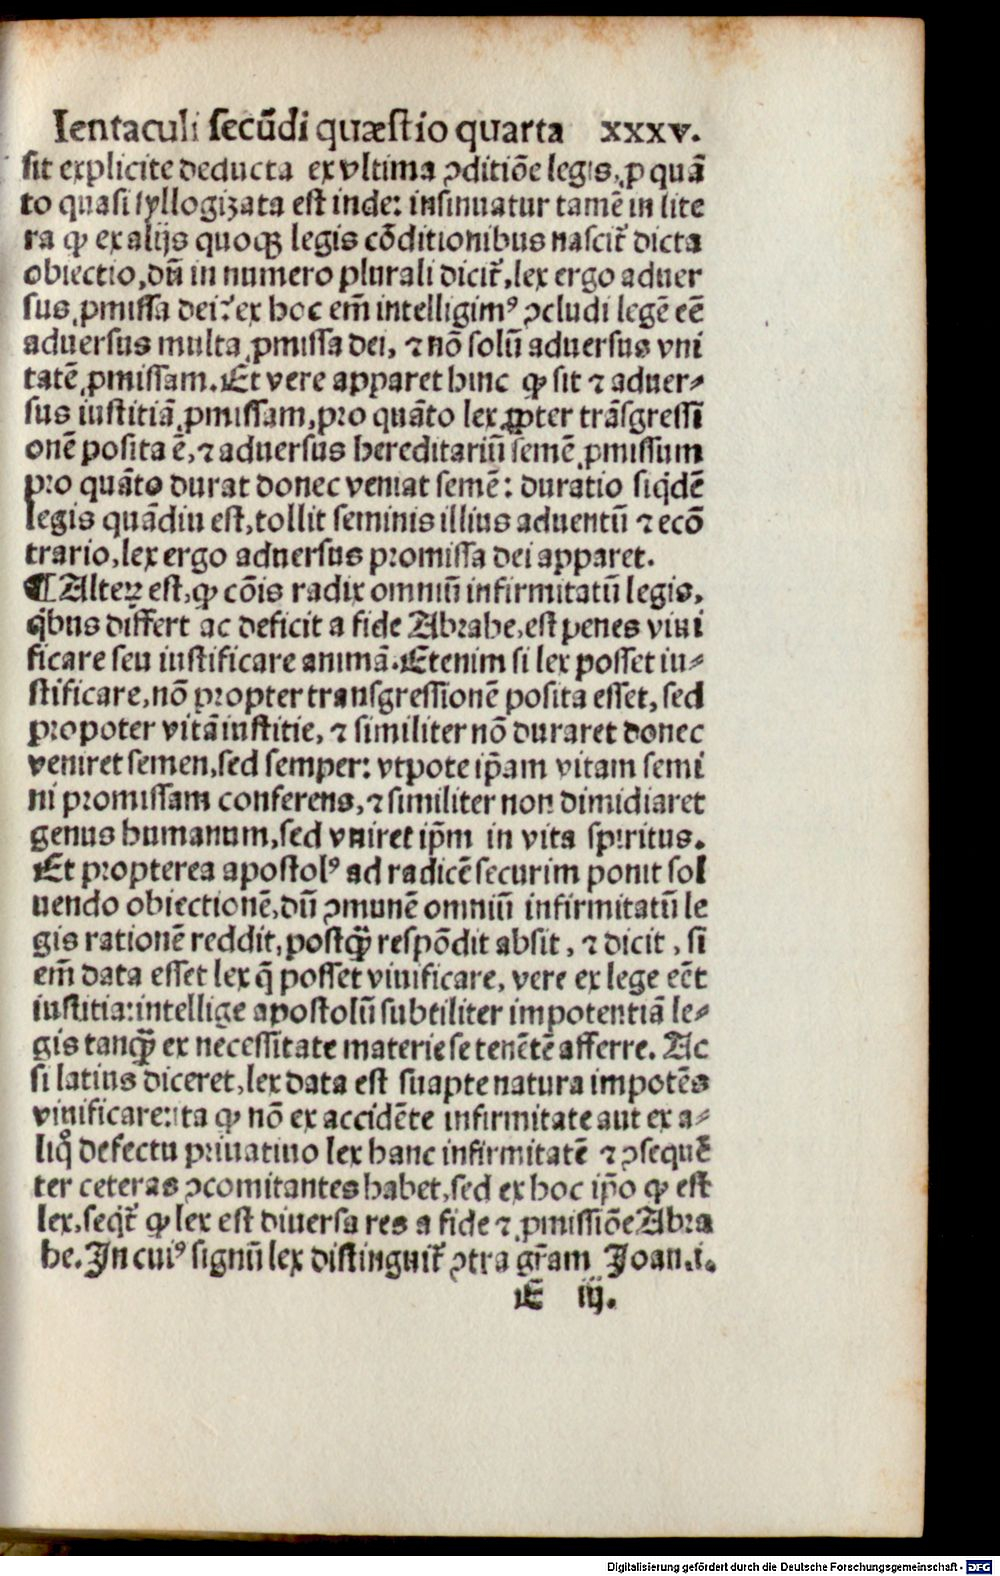 Ientaculi secūdi quæstio quarta xxxv.
sit explicite deducta ex vltima ↄditiōe legis, ꝓ quā
to quasi syllogizata est inde: insinuatur tamē in lite
ra ꝙ ex alijs quoqꝫ legis cōditionibus nascit᷑ dicta
obiectio, dū in numero plurali dicit᷑, lex ergo aduer
sus ꝓmissa dei? ex hoc em̄ intelligimꝰ ↄcludi legē eē
aduersus multa ꝓmissa dei, ⁊ nō solū aduersus vni
tatē ꝓmissam. Et vere apparet hinc ꝙ sit ⁊ aduer⸗
sus iustitiā ꝓmissam, pro quāto lex ꝓpter trāsgressi
onē posita ē, ⁊ aduersus hereditariū semē ꝓmissum
pro quāto durat donec veniat semē: duratio siq̇dē
legis quādiu est, tollit seminis illius aduentū ⁊ ecō
trario, lex ergo aduersus promissa dei apparet.
¶ Alteꝝ est, ꝙ cōis radix omniū infirmitatū legis,
q̇bus differt ac deficit a fide Abrahe, est penes viui
ficare seu iustificare animā. Etenim si lex posset iu⸗
stificare, nō propter transgressionē posita esset, sed
propoter vitā iustitie, ⁊ similiter nō duraret donec
veniret semen, sed semper: vtpote ip̄am vitam semi
ni promissam conferens, ⁊ similiter non dimidiaret
genus humanum, sed vniret ip̄m in vita spiritus.
Et propterea apostolꝰ ad radicē securim ponit sol
uendo obiectionē, dū ↄmunē omniū infirmitatū le
gis rationē reddit, postꝙ̄ respōdit absit, ⁊ dicit, si
em̄ data esset lex q̄ posset viuificare, vere ex lege eēt
iustitia: intellige apostolū subtiliter impotentiā le⸗
gis tanꝙ̄ ex necessitate materie se tenētē afferre. Ac
si latius diceret, lex data est suapte natura impotēs
viuificare: ita ꝙ nō ex accidēte infirmitate aut ex a⸗
liqͦ defectu priuatiuo lex hanc infirmitatē ⁊ ↄsequē
ter ceteras ↄcomitantes habet, sed ex hoc ip̄o ꝙ est
lex, seqt᷑ ꝙ lex est diuersa res a fide ⁊ ꝓmissiōe Abra
he. In cuiꝰ signū lex distinguit᷑ ↄtra gr̄am Joan.i.
E iij.
Digitalisierung gefördert durch die Deutsche Forschungsgemeinschaft - DFG